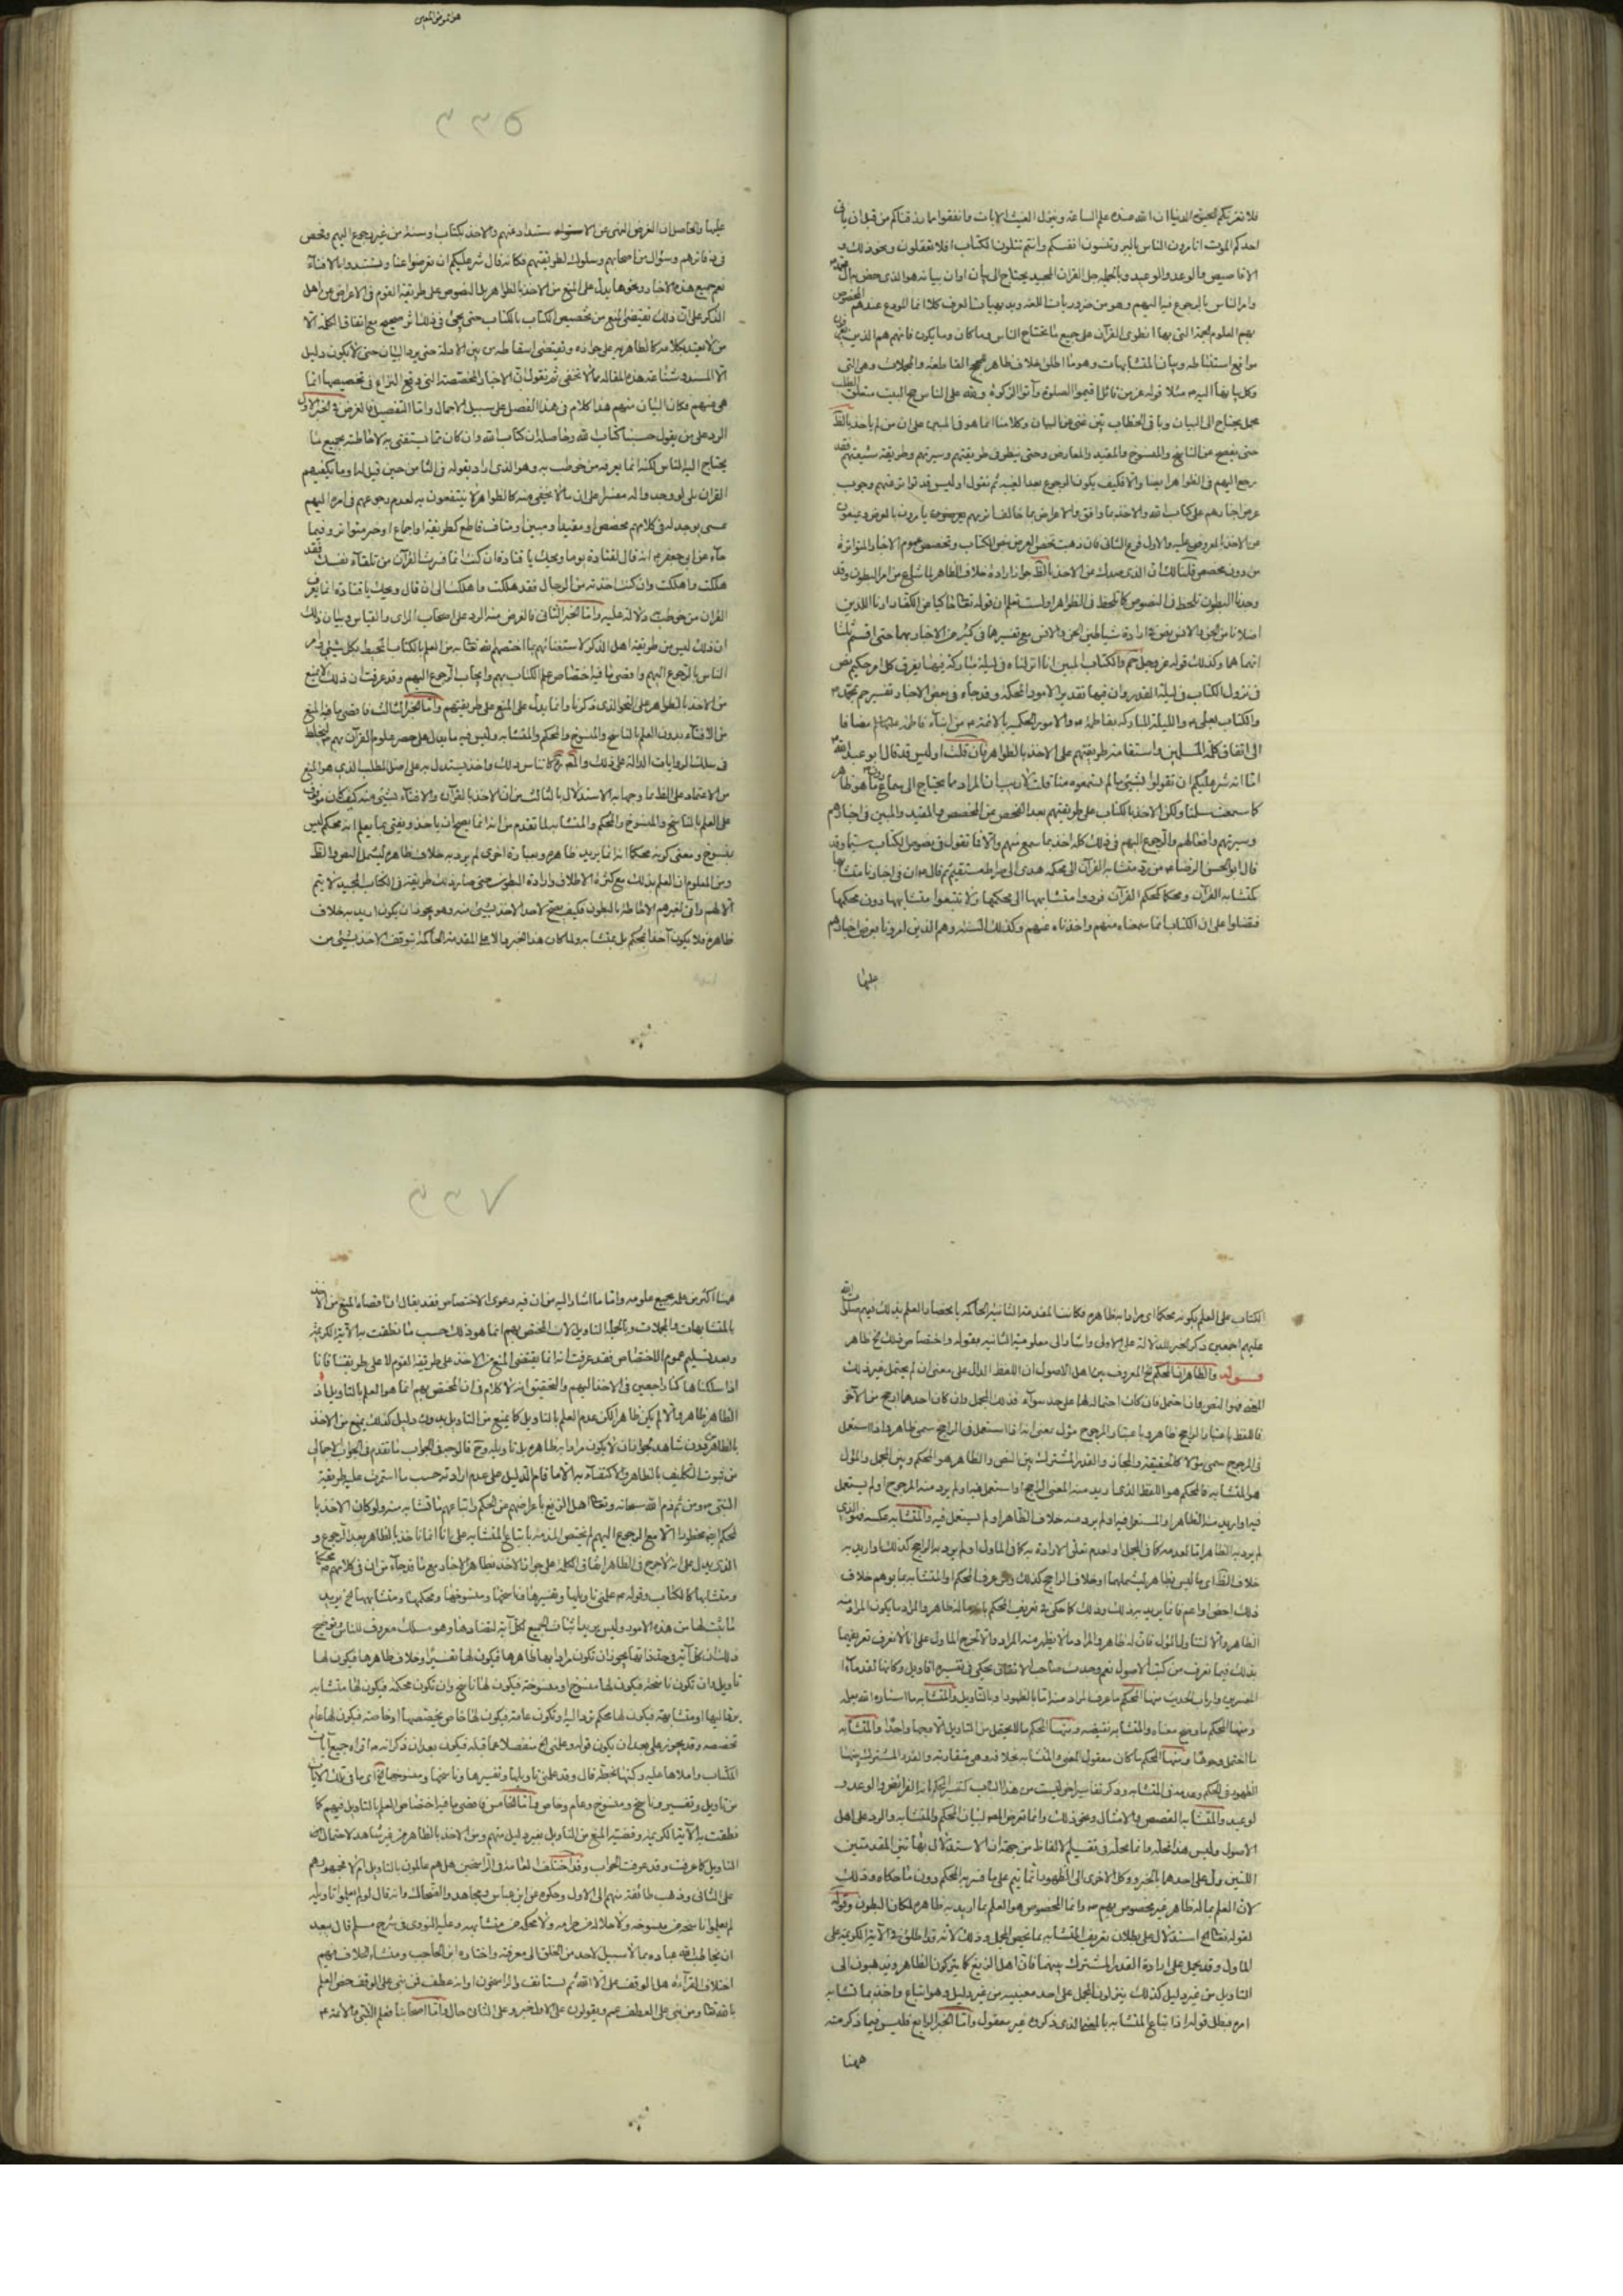 فلا تغرنكم الحيوة الدنيا ان الله عنده علم الساعة وينزل الغيث الايات وانفقوا مما رزقناكم من قبل ان ياتى
احدكم الموت اتامرون الناس بالبر وتنسون انفسكم وانتم تتلون الكتاب افلا تعقلون ونحو ذلك و
الاقاصيص والوعد والوعيد وبالجملة جل القران المجيد يحتاج الى بيان اوان بيانه هو الذى خص بال محمد
وامر الناس بالرجوع فيه اليهم وهو من ضروريات اللغة وبديهيات العرف كلا انما المودع عندهم المخصوص
بهم العلوم الجمة التى بها انطوى القرآن على جميع ما يحتاج الناس وما كان وما يكون فانهم هم الذين يعرفون
مواقع استنباطه وبيان المتشابهات وهو ما اطلق خلاف ظاهره والمجملات وهى التى
مجمل يحتاج الى البيان وباقى الخطاب بين غنى عن البيان وكلامنا انما هو فى المبين على ان من لم ياخذ بالظ
حتى يفحص عن الناسخ والمنسوخ والمقيد والمعارض وحتى ينظر فى طريقتهم وسيرتهم وطريقة شيعتهم فقد
رجع اليهم فى الظواهر ايضا والا فكيف يكون الرجوع بعد الغيبة ثم نقول اوليس قد تواتر عنهم وجوب
عرض اخبارهم على كتاب الله والاخذ بما وافق والاعراض عما خالف
من دون مخصص قلنا لك ان الذى صدك عن الاخذ بالظ جواز ارادة خلاف الظاهر لما شاع من امر البطون وقد
وجدنا البطون تلحظ فى النصوص كما تلحظ فى الظواهر اولست تعلم ان قوله تعالى حاكيا عن الكفار ارنا اللذين
اضلانا من الجن والانس نص فى ارادة شياطين الجن والانس مع تفسيرها فى كثير من الاخبار بهما حتى اقسم
انهما هما وكذلك قوله عز وجل حم والكتاب المبين انا انزلناه فى ليلة مباركة فيها يفرق كل امر حكيم نص
فى نزول الكتاب فى ليلة القدر وان فيها تقدير الامور المحكمة وقد جاء فى بعض الاخبار تفسير حم بمحمد
والكتاب بعلى والليلة المباركة بفاطمة والامور الحكيمة بالائمة من ابناء فاطمة مضافا
الى اتفاق كلمة المسلمين واستقامة طريقتهم على الاخذ بالظواهر فان قلت اوليس قد قال ابو عبد الله
انما انه شر عليكم ان تقولوا بشئ ما لم تسمعوه منا قلت لا ريب ان المراد ما يحتاج الى سماع
كما سمعت سلمنا ولكن الاخذ بالكتاب على طريقتهم بعد الفحص عن المخصص والمقيد والمبين فى اخبارهم
وسيرتهم وافعالهم والرجوع اليهم فى ذلك كله اخذ بما سمع منهم والا فما تقول فى نصوص الكتاب سيما وقد
قال ابو الحسن الرضا من رد متشابه القرآن الى محكمه هدى الى صراط مستقيم ثم قال ان فى اخبارنا متشابها
كمتشابه القرآن ومحكما كمحكم القرآن فردوا متشابهها الى محكمها ولا تتبعوا متشابهها دون محكمها
فتضلوا على ان الكتاب انما سمعناه منهم واخذناه عنهم وكذلك السنة وهم الذين امرونا بعرض اخبارهم
عليها
٣٣٥
عليها والحاصل ان الغرض النهى عن الاستبداد عنهم والاخذ بكتاب وسنة من غير رجوع اليهم وفحص
فى مآثرهم وسؤال من اصحابهم وسلوك لطريقتهم فكانه قال شر عليكم ان تعرضوا عنا وتستبدوا بالافتاء
نعم جميع هذه الاخبار ونحوها يدل على المنع من الاخذ بالظواهر بل النصوص على طريقة القوم فى الاعراض عن اهل
الذكر على ان ذلك يقتضى المنع من تخصيص الكتاب بالكتاب حتى يجئ فى ذلك اثر صحيح مع اتفاق الكلمة الا
من لا يعتد بكلامه كالظاهرية على جوازه وتقتضى اسقاطه من بين الادلة حتى يرد البيان حتى لا يكون دليل
الا السنة وشناعة هذه المقالة مما لا تخفى ثم نقول ان الاخبار المخصصة التى وقع النزاع فى تخصيصها انما
هى منهم فكان البيان منهم هذا كلام فى هذا الفصل على سبيل الاجمال واما التفصيل فالغرض فى الخبر الاول
الرد على من يقول حسبنا كتاب الله وحاصله ان كتاب الله وان كان مما يستغنى به لاحاطته بجميع ما
يحتاج اليه الناس لكنه انما يعرفه من خوطب به وهو الذى اراد بقوله فى الثامن حين قيل له وما يكفيهم
القران بلى لو وجدوا له مفسرا على ان ما لا يخفى منه كالظواهر لا ينتفعون به لعدم رجوعهم فى امره اليهم
عسى يوجد له فى كلامهم مخصصا ومقيدا ومبينا
جاء عن ابى جعفر انه قال لقتادة يوما ويحك يا قتادة ان كنت انما فسرت القرآن من تلقاء نفسك فقد
هلكت واهلكت وان كنت اخذته من الرجال فقد هلكت واهلكت الى ان قال ويحك يا قتادة انما يعرف
القران من خوطب به واما الخبر الثانى فالغرض منه الرد على اصحاب الراى والقياس وبيان ذلك
ان ذلك ليس من طريقة اهل الذكر لاستغنائهم بما اختصهم الله تعالى به من العلم بالكتاب المحيط بكل شئ وامر
الناس بالرجوع اليهم واقصى ما فيه اختصاص علم الكتاب بهم وايجاب الرجوع اليهم وقد عرفت ان ذلك لا يمنع
من الاخذ بالظواهر على النحو الذى ذكرنا وانما يدل على المنع على طريقتهم واما الخبر الثالث فاقصى ما فيه المنع
من الافتاء بدون العلم بالناسخ والمنسوخ والمحكم والمتشابه وليس فيه ما يدل على حصر علوم القرآن بهم
من الاعتماد على الظ
على العلم بالناسخ والمنسوخ والمحكم والمتشابه لما تقدم من انه انما يصح ان ياخذ ويفتى بما يعلم انه محكم ليس
بمنسوخ ومعنى كونه محكما انه انما يريد ظاهره وبعبارة اخرى لم يرد به خلاف ظاهره ليشمل النص والظ
ومن المعلوم ان العلم بذلك مع كثرة الاطلاق وارادة البطون حتى صار ذلك طريقة فى الكتاب المجيد لا يتم
الا لهم وانى لغيرهم الاحاطة بالبطون فكيف يصح لاحد الاخذ بشئ منه وهو يجوز ان يكون اريد به خلاف
ظاهره فلا يكون آخذا بمحكم بل بمتشابه ولما كان هذا الخبر دالا على المقدمة الحاكمة بتوقف الاخذ بشئ من
الكتاب على العلم بكونه محكما اى مرادا به ظاهره فكانت المقدمة الثانية الحاكمة بانحصار العلم بذلك فيهم صلوات الله
عليهم اجمعين ذكر الخبر للدلالة على الاولى واشار الى معلومية الثانية بقوله واختصاص ذلك بهم ظاهر
قوله والظاهر ان المحكم الخ المعروف بين اهل الاصول ان اللفظ الدال على معنى ان لم يحتمل غير ذلك
المعنى فهو النص وان احتمل فان كان احتماله لهما على حد سواء فذلك المجمل وان كان احدهما ارجح من الآخر
فاللفظ باعتبار الراجح ظاهر وباعتبار المرجوح مؤل بمعنى انه اذا استعمل فى الراجح سمى ظاهرا واذا استعمل
فى المرجوح سمى مؤلا كالحقيقة والمجاز والقدر المشترك بين النص والظاهر هو المحكم وبين المجمل والمؤل
هو المتشابه فالمحكم هو اللفظ الذى اريد منه المعنى الراجح او استعمل فيه ولم يرد منه المرجوح او لم يستعمل
فيه او اريد منه الظاهر او المستعمل فيه ولم يرد منه خلاف الظاهر او لم يستعمل فيه والمتشابه عكسه فهو الذى
لم يرد به الظاهر اما لعدمه كما فى المجمل او لعدم تعلق الارادة به كما فى الماول او لم يرد به الراجح كذلك او اريد به
خلاف الظ اى ما ليس بظاهر ليشملهما او خلاف الراجح كذلك ومن عرف المحكم او المتشابه بما يوهم خلاف
الظاهر والا لتناول المؤل فان له ظاهر والمراد ما لا يظهر منه المراد والا لخرج الماول على انا لا نعرف تعريفهما
بذلك فيما نعرف من كتب الاصول نعم وجدت صاحب الاتقان يحكى فى تفسيره اقاويل وكانها لقدماء
المفسرين وارباب الحديث منها المحكم ما عرف المراد منه اما بالظهور او بالتاويل والمتشابه ما استاثر الله بعلمه
ومنها المحكم ما وضح معناه والمتشابه نقيضه ومنها المحكم ما لا يحتمل من التاويل الا وجها واحدا والمتشابه
ما احتمل وجوها ومنها المحكم ما كان معقول المعنى والمتشابه بخلافه وهى متقاربة والقدر المشترك بينها
الظهور فى المحكم وعدمه فى المتشابه وذكر تفاسير اخر ليست من هذا الباب كتفسير المحكم انه الفرائض والوعد و
الوعيد والمتشابه القصص والامثال ونحو ذلك وانما تعرض المصنف لبيان المحكم والمتشابه والرد على اهل
الاصول وليس هذا محله وانما محله فى تقسيم الالفاظ من جهة ان الاستدلال بهاتين المقدمتين
اللتين دل على احدهما بالخبر ووكل الاخرى الى الظهور انما يتم على ما فسر به المحكم دون ما حكاه وذلك
لان العلم بما له ظاهر غير مخصوص بهم وانما المخصوص هو العلم بما اريد به ظاهره لمكان البطون وقوله
لقوله تعالى الخ استدلال على بطلان تعريف المتشابه بما يخص المجمل وذلك لانه قد اطلق فى الآية الكريمة على
الماول وقد يحمل على ارادة القدر المشترك بينهما فان اهل الزيغ كما يتركون الظاهر ويذهبون الى
التاويل من غير دليل كذلك ينزلون المجمل على احد معنييه من غير دليل وهو اتباع واخذ بما تشابه
امره فبطل قوله اذ اتباع المتشابه بالمعنى الذى ذكروه غير معقول واما الخبر الرابع فليس فيما ذكر منه
ههنا
٣٣٧
ههنا اكثر من علمه بجميع علومه واما ما اشار اليه من ان فيه دعوى الاختصاص فقد يقال اقصاه المنع من الاخذ
بالمتشابهات والمجملات وبالجملة التاويل لان المختص بهم انما هو ذلك حسب ما نطقت به الآية الكريمة
وبعد تسليم عموم الاختصاص فقد عرفت انه انما يقتضى المنع من الاخذ على طريقة القوم لا على طريقتنا فانا
اذا سلكناها كنا راجعين فى الاخذ اليهم والتحقيق انه لا كلام فى ان المختص بهم انما هو العلم بالتاويل اذ
الظاهر ظاهر والا لم يكن ظاهرا لكن عدم العلم بالتاويل كما يمنع من التاويل بدون دليل كذلك يمنع من الاخذ
بالظاهر بدون شاهد لجواز ان لا يكون مرادا به ظاهره بل تاويله وح فالوجه فى الجواب ما تقدم فى الجواب الاجمالى
من ثبوت التكليف بالظاهر والاكتفاء به الا ما قام الدليل على عدم ارادته حسب ما استمرت عليه طريقة
النبى ومن ثم ذم الله سبحانه وتعالى اهل الزيغ باعراضهم عن المحكم واتباعهم ما تشابه منه ولو كان الاخذ با
لمحكم ايضا محظورا الا مع الرجوع اليهم لم يختص الذم منه باتباع المتشابه على انا انما ناخذ بالظاهر بعد الرجوع و
الذى يدل على انه لا حرج فى الظاهر اتفاق الكلمة على جواز الاخذ بظاهر الاخبار مع ما قد جاء من ان فى كلامهم محكما
ومتشابها كالكتاب وقوله علمنى تاويلها وتفسيرها وناسخها ومنسوخها ومحكمها ومتشابهها الخ يريد
ما يثبت لها من هذه الامور وليس يريد اثبات الجميع لكل آية لتضادها وهو مسلك معروف للناس توضيح
ذلك ان كل آية فى حد ذاتها يجوز ان تكون مرادا بها ظاهرها فيكون لها تفسير او خلاف ظاهرها فيكون لها
تاويل وان تكون ناسخة فيكون لها منسوخ او منسوخة فيكون لها ناسخ وان تكون محكمة فيكون لها متشابه
يرد اليها او متشابهة فيكون لها محكم ترد اليه وتكون عامة فيكون لها خاص يخصصها او خاصة فيكون لها عام
تخصصه وقد يجوز على بعد ان يكون قوله وعلمنى الخ منفصلا عما قبله فيكون بعد ان ذكر انه اقراه جميع آيات
الكتاب واملاها عليه وكتبها بخطه قال وقد علمنى تاويلها وتفسيرها وناسخها ومنسوخها الخ اى ما فى تلك الآيات
من تاويل وتفسير وناسخ ومنسوخ وعام وخاص واما الخامس فاقصى ما فيه اختصاص العلم بالتاويل فيهم كما
نطقت به الآية الكريمة وقضيته المنع من التاويل بغير دليل منهم ومن الاخذ بالظاهر من غير شاهد لاحتمال
التاويل كما عرفت وقد عرفت الجواب وقد اختلف العامة فى الراسخين هل هم عالمون بالتاويل ام لا فجمهورهم
على الثانى وذهب طائفة منهم الى الاول وحكوه عن ابن عباس ومجاهد والضحاك وانه قال لو لم يعلموا تاويله
لم يعلموا ناسخه من منسوخه ولا حلاله من حرامه ولا محكمه من متشابهه وعليه النووى فى شرح مسلم قال يبعد
ان يخاطب الله عباده بما لا سبيل لاحد من الخلق الى معرفته واختاره ابن الحاجب ومنشاء الخلاف فيهم
اختلاف القرآءة هل الوقف على الا الله ثم يستانف والراسخون او انه عطف فمن بنى على الوقف خص العلم
بالله تعالى ومن بنى على العطف عم ويقولون على الاول خبر وعلى الثانى حال واما اصحابنا فعلم النبى والائمة